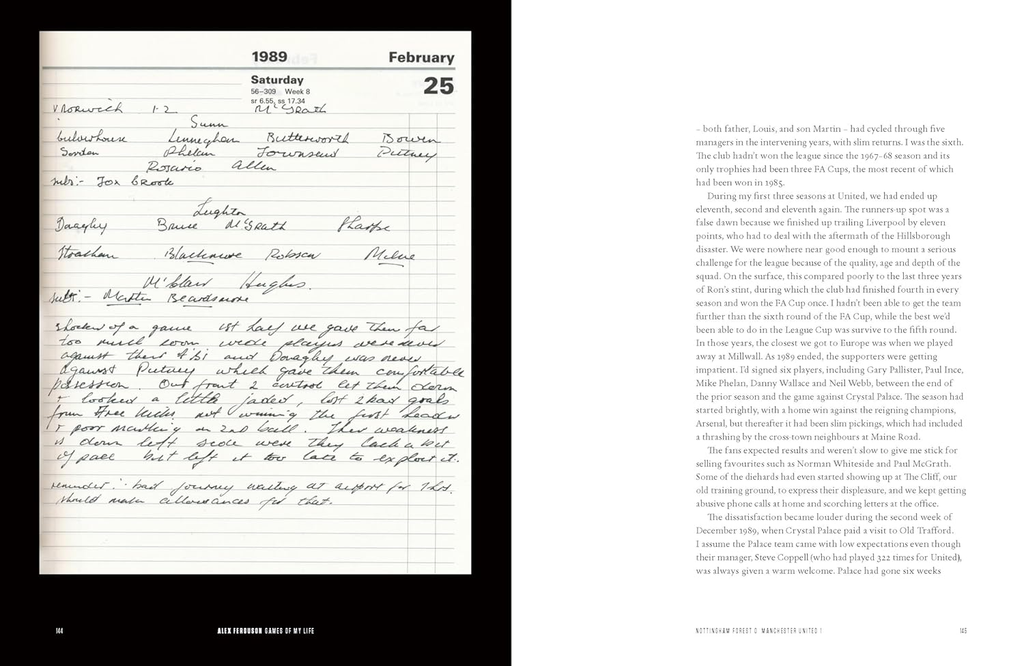 1989 February
Saturday 25
56–309 Week 8
sr 6.55, ss 17.34
V Norwich 1-2 McGrath
Gunn
Culverhouse Linneghan Butterworth Bowen
Gordon Phelan Townsend Putney
Rosario Allen
subs:- Fox Crook
Leighton
Donaghy Bruce McGrath Sharpe
Strachan Blackmore Robson Milne
McClair Hughes.
subs:- Martin Beardsmore
shocker of a game 1st half we gave them far
too much room wide players were never
against there F'B's and Donaghy was never
against Putney which gave them comfortable
possession. Our front 2 control let them down
+ looked a little jaded, lost 2 bad goals
from Free Kicks not winning the first header
+ poor marking on 2nd ball. Their weakness
is down left side were they lack a bit
of pace but left it too late to exploit it.
reminder: bad journey waiting at airport for 1 hrs.
should make allowances for that.
144 ALEX FERGUSON GAMES OF MY LIFE
– both father, Louis, and son Martin – had cycled through five
managers in the intervening years, with slim returns. I was the sixth.
The club hadn't won the league since the 1967–68 season and its
only trophies had been three FA Cups, the most recent of which
had been won in 1985.
During my first three seasons at United, we had ended up
eleventh, second and eleventh again. The runners-up spot was a
false dawn because we finished up trailing Liverpool by eleven
points, who had to deal with the aftermath of the Hillsborough
disaster. We were nowhere near good enough to mount a serious
challenge for the league because of the quality, age and depth of the
squad. On the surface, this compared poorly to the last three years
of Ron's stint, during which the club had finished fourth in every
season and won the FA Cup once. I hadn't been able to get the team
further than the sixth round of the FA Cup, while the best we'd
been able to do in the League Cup was survive to the fifth round.
In those years, the closest we got to Europe was when we played
away at Millwall. As 1989 ended, the supporters were getting
impatient. I'd signed six players, including Gary Pallister, Paul Ince,
Mike Phelan, Danny Wallace and Neil Webb, between the end of
the prior season and the game against Crystal Palace. The season had
started brightly, with a home win against the reigning champions,
Arsenal, but thereafter it had been slim pickings, which had included
a thrashing by the cross-town neighbours at Maine Road.
The fans expected results and weren't slow to give me stick for
selling favourites such as Norman Whiteside and Paul McGrath.
Some of the diehards had even started showing up at The Cliff, our
old training ground, to express their displeasure, and we kept getting
abusive phone calls at home and scorching letters at the office.
The dissatisfaction became louder during the second week of
December 1989, when Crystal Palace paid a visit to Old Trafford.
I assume the Palace team came with low expectations even though
their manager, Steve Coppell (who had played 322 times for United),
was always given a warm welcome. Palace had gone six weeks
NOTTINGHAM FOREST 0 MANCHESTER UNITED 1 145